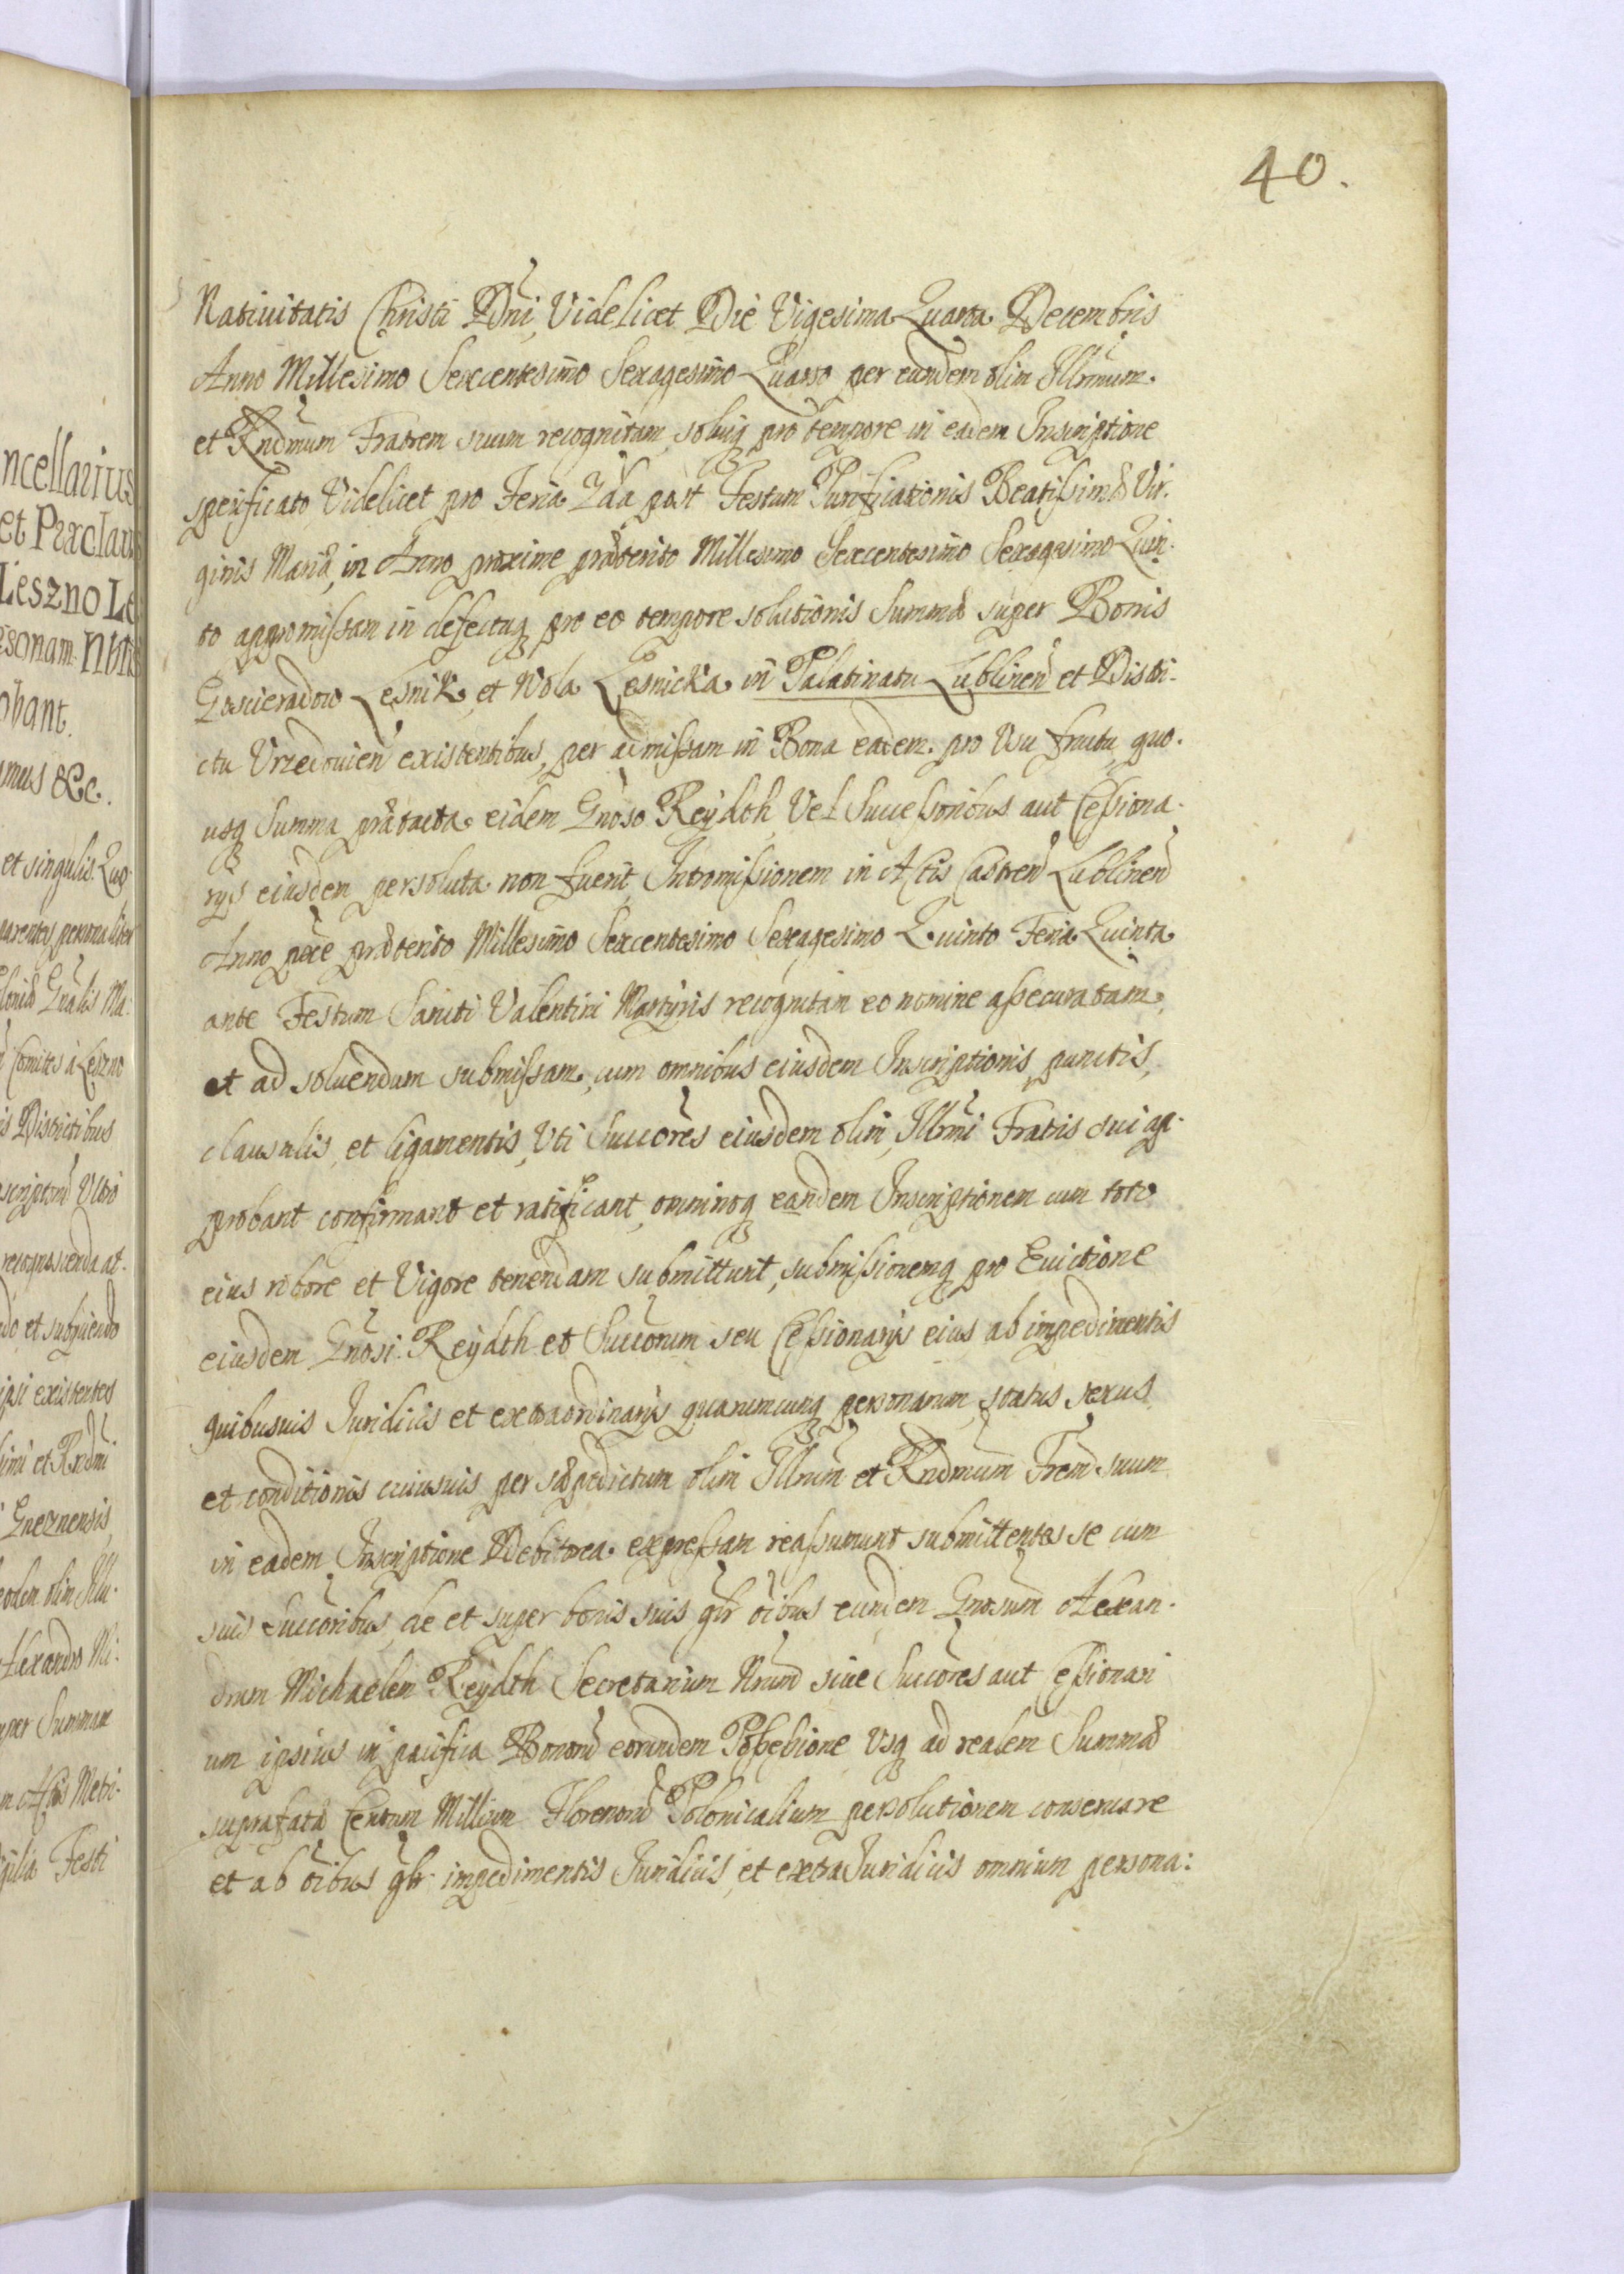 40.
Nativitatis Christi Dni, Videlicet Die Vigesima Quarta Decembris
Anno Millesimo Sexcentesimo Sexagesimo Quarto per eundem olim Illrmum
et Rndmum Fratrem suum recognitam, soluiq pro tempore in eadem Inscriptione
specificato, Videlicet pro Feria 2da post Festum Purificationis Beatissimæ Vir.
ginis Mariæ, in Anno proxime præterito Millesimo Sexcentesimo Sexagesimo Quin.
to appromissam in defectuq pro eo tempore solutionis Summæ super Bonis
Goscieradow Lesnik et Wola Lesnicka in Palatinatu Lublinen et Distri.
ctu Vrzedouien existentibus, per admissam in Bona eadem pro Usu fructu, quo.
usq Summa prætacta eidem Gnoso Reydth, Vel Successoribus aut Cessiona.
rijs eiusdem persoluta non fuerit, Intromissionem in Actis Castren Lublinen
Anno pxe præterito Millesimo Sexcentesimo Sexagesimo Quinto Feria Quinta
ante Festum Sancti Valentini Martyris recognitam eo nomine assecuratam,
et ad soluendum submissam, cum omnibus eiusdem Inscriptionis punctis,
clausulis, et ligamentis, Uti Succores eiusdem olim, Illrmi Fratris sui ap.
probant confirmant et ratificant, omninoq eandem Inscriptionem cum toto
eius robore et Vigore tenendam submittunt, submissionemq pro Euictione
eiusdem Gnosi Reydth et Succorum seu Cessionarijs eius ab impedimentis
quibusuis Juridicis et extraordinarijs quarumcunq personarum, status sexus
et conditionis cuiusuis per sæpedictum olim Illrmum et Rndmum Frem suum
in eadem Inscriptione Debitorea expressam reassumunt submittentes se cum
suis Succoribus, de et super bonis suis glr oibus eundem Gnosum Alexan.
drum Michaelem Reydth Secretarium Nrum siue Succores aut Cessionari
um ipsius in pacifica Bonorum eorundem Possessione, Usq ad realem Summæ
suprafatæ Centum Millium Florenorum Polonicalium persolutionem conseruare
et ab oibus glr impedimentis Juridicis, et extra Juridicis omnium persona:
ncellarius
et Præclar
Leszno Le
sonam Nris
obant.
mus &c.
et singulis Quo
Gnalis Ma:
Comites à Leszno
is Districtibus
recognoscenda at.
do et subijciendo
ipsi existentes
et Rndmi
Gneznensis
olim Illu.
Alexandro Mi:
per Summam
Actis Metri.
Festi